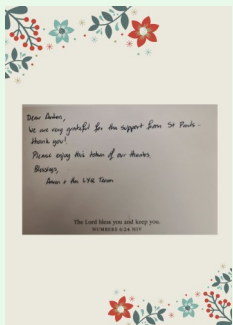 Dear Anton,
We are very grateful for the support from St Pauls -
thank you!
Please enjoy this token of our thanks.
Blessings,
& the Team
The Lord bless you and keep you.
NUMBERS 6:24 NIV